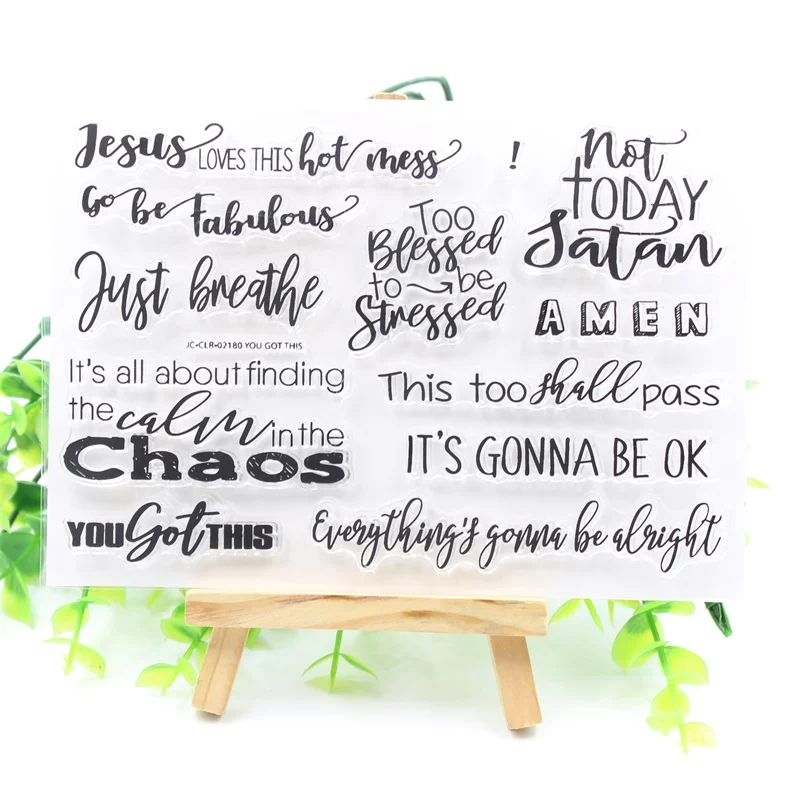 Jesus LOVES THIS hot mess !
Go be Fabulous
Just breathe
JC-CLR-02180 YOU GOT THIS
It's all about finding
the calm in the
Chaos
YOU Got THIS
Too
Blessed
to be
Stressed
Not
TODAY
Satan
AMEN
This too shall pass
IT'S GONNA BE OK
Everything's gonna be alright